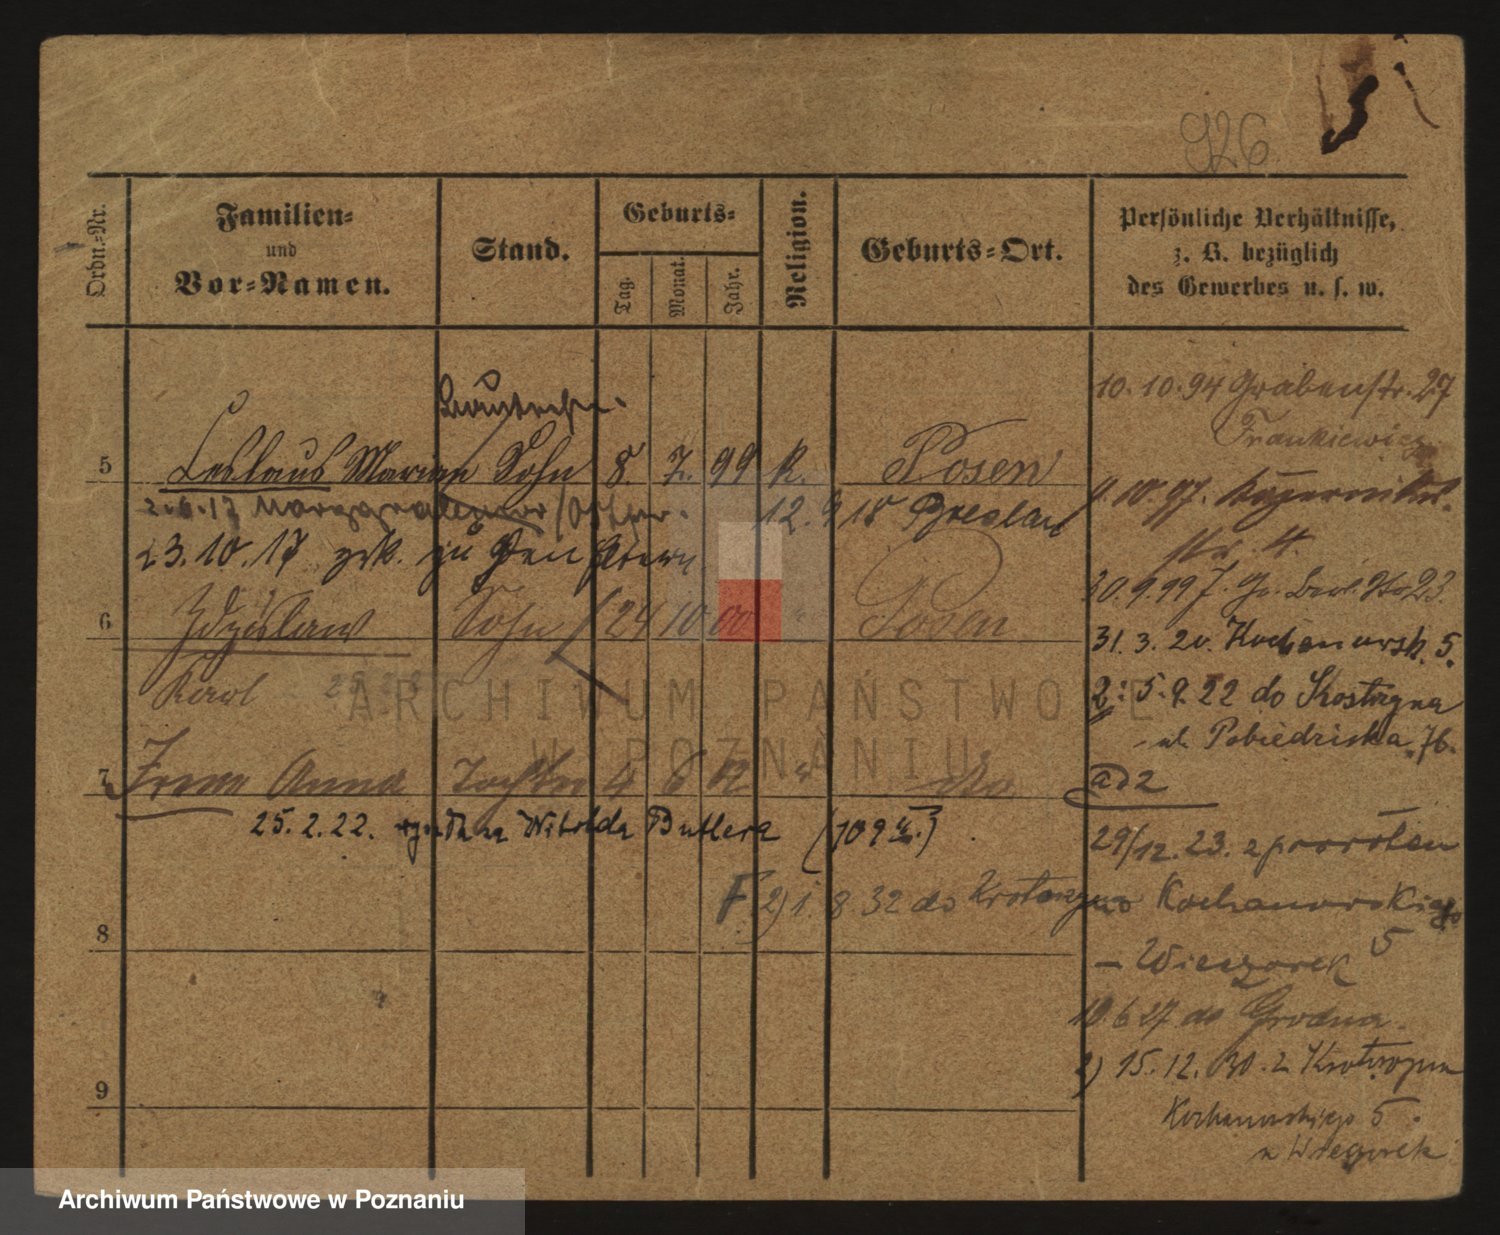 926
Ordn.-Nr.
Familien-
und
Vor-Namen.
Stand.
Geburts-
Tag.
Monat.
Jahr.
Religion.
Geburts-Ort.
Persönliche Verhältnisse,
z. B. bezüglich
des Gewerbes u. s. w.
5 Leslaus Marian Sohn 8. 7. 99 K. Posen
12. 9 18 Breslau
23.10.17 zrk. zu den Eltern
6 Zdzislaw Sohn 24 10 00 " Posen
Karl
7 Irene Anna Tochter 4 6 02 "
25.2.22. Witolda Butlera (109
F. 2) 1. 8 32 do Krotoszyna
8
9
10.10.94 Grabenstr. 27
Frankiewicz
9.10.97.
str. 4.
30.9.99 23.
31. 3. 20. Kochanowsk. 5.
2: 5.9.22 do Kostrzyna
ul. Pobiedziska 76.
ad 2
29/12. 23. z powrotem
Kochanowskiego
5
- Wieczorek
10.6 27 do Grodna.
2) 15.12.30. z Krotoszyna
Kochanowskiego 5.
u Wieczorek
ARCHIWUM PAŃSTWOWE
W POZNANIU
Archiwum Państwowe w Poznaniu